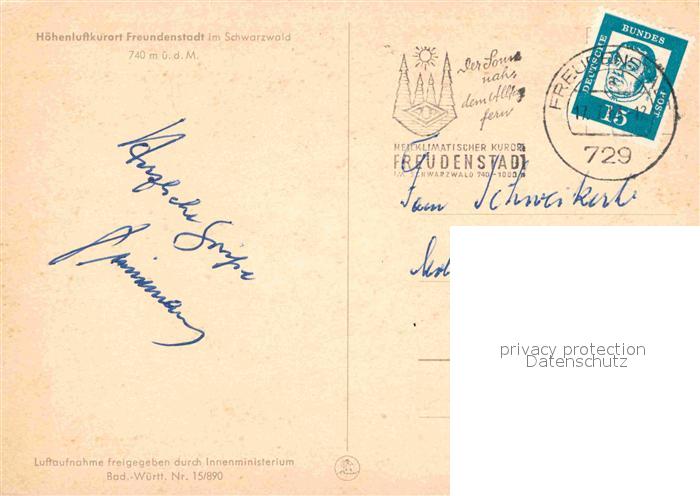 Höhenluftkurort Freundenstadt im Schwarzwald
740 m ü. d. M.
Herzliche Grüße
Luftaufnahme freigegeben durch Innenministerium
Bad.-Württ. Nr. 15/890
Der Sonne
nah
dem Alltag
fern
HEILKLIMATISCHER KURORT
FREUDENSTADT
IM SCHWARZWALD 740-1000 m
FREUDENSTADT
729
DEUTSCHE
BUNDES
POST
15
Fam Schweikert
privacy protection
Datenschutz